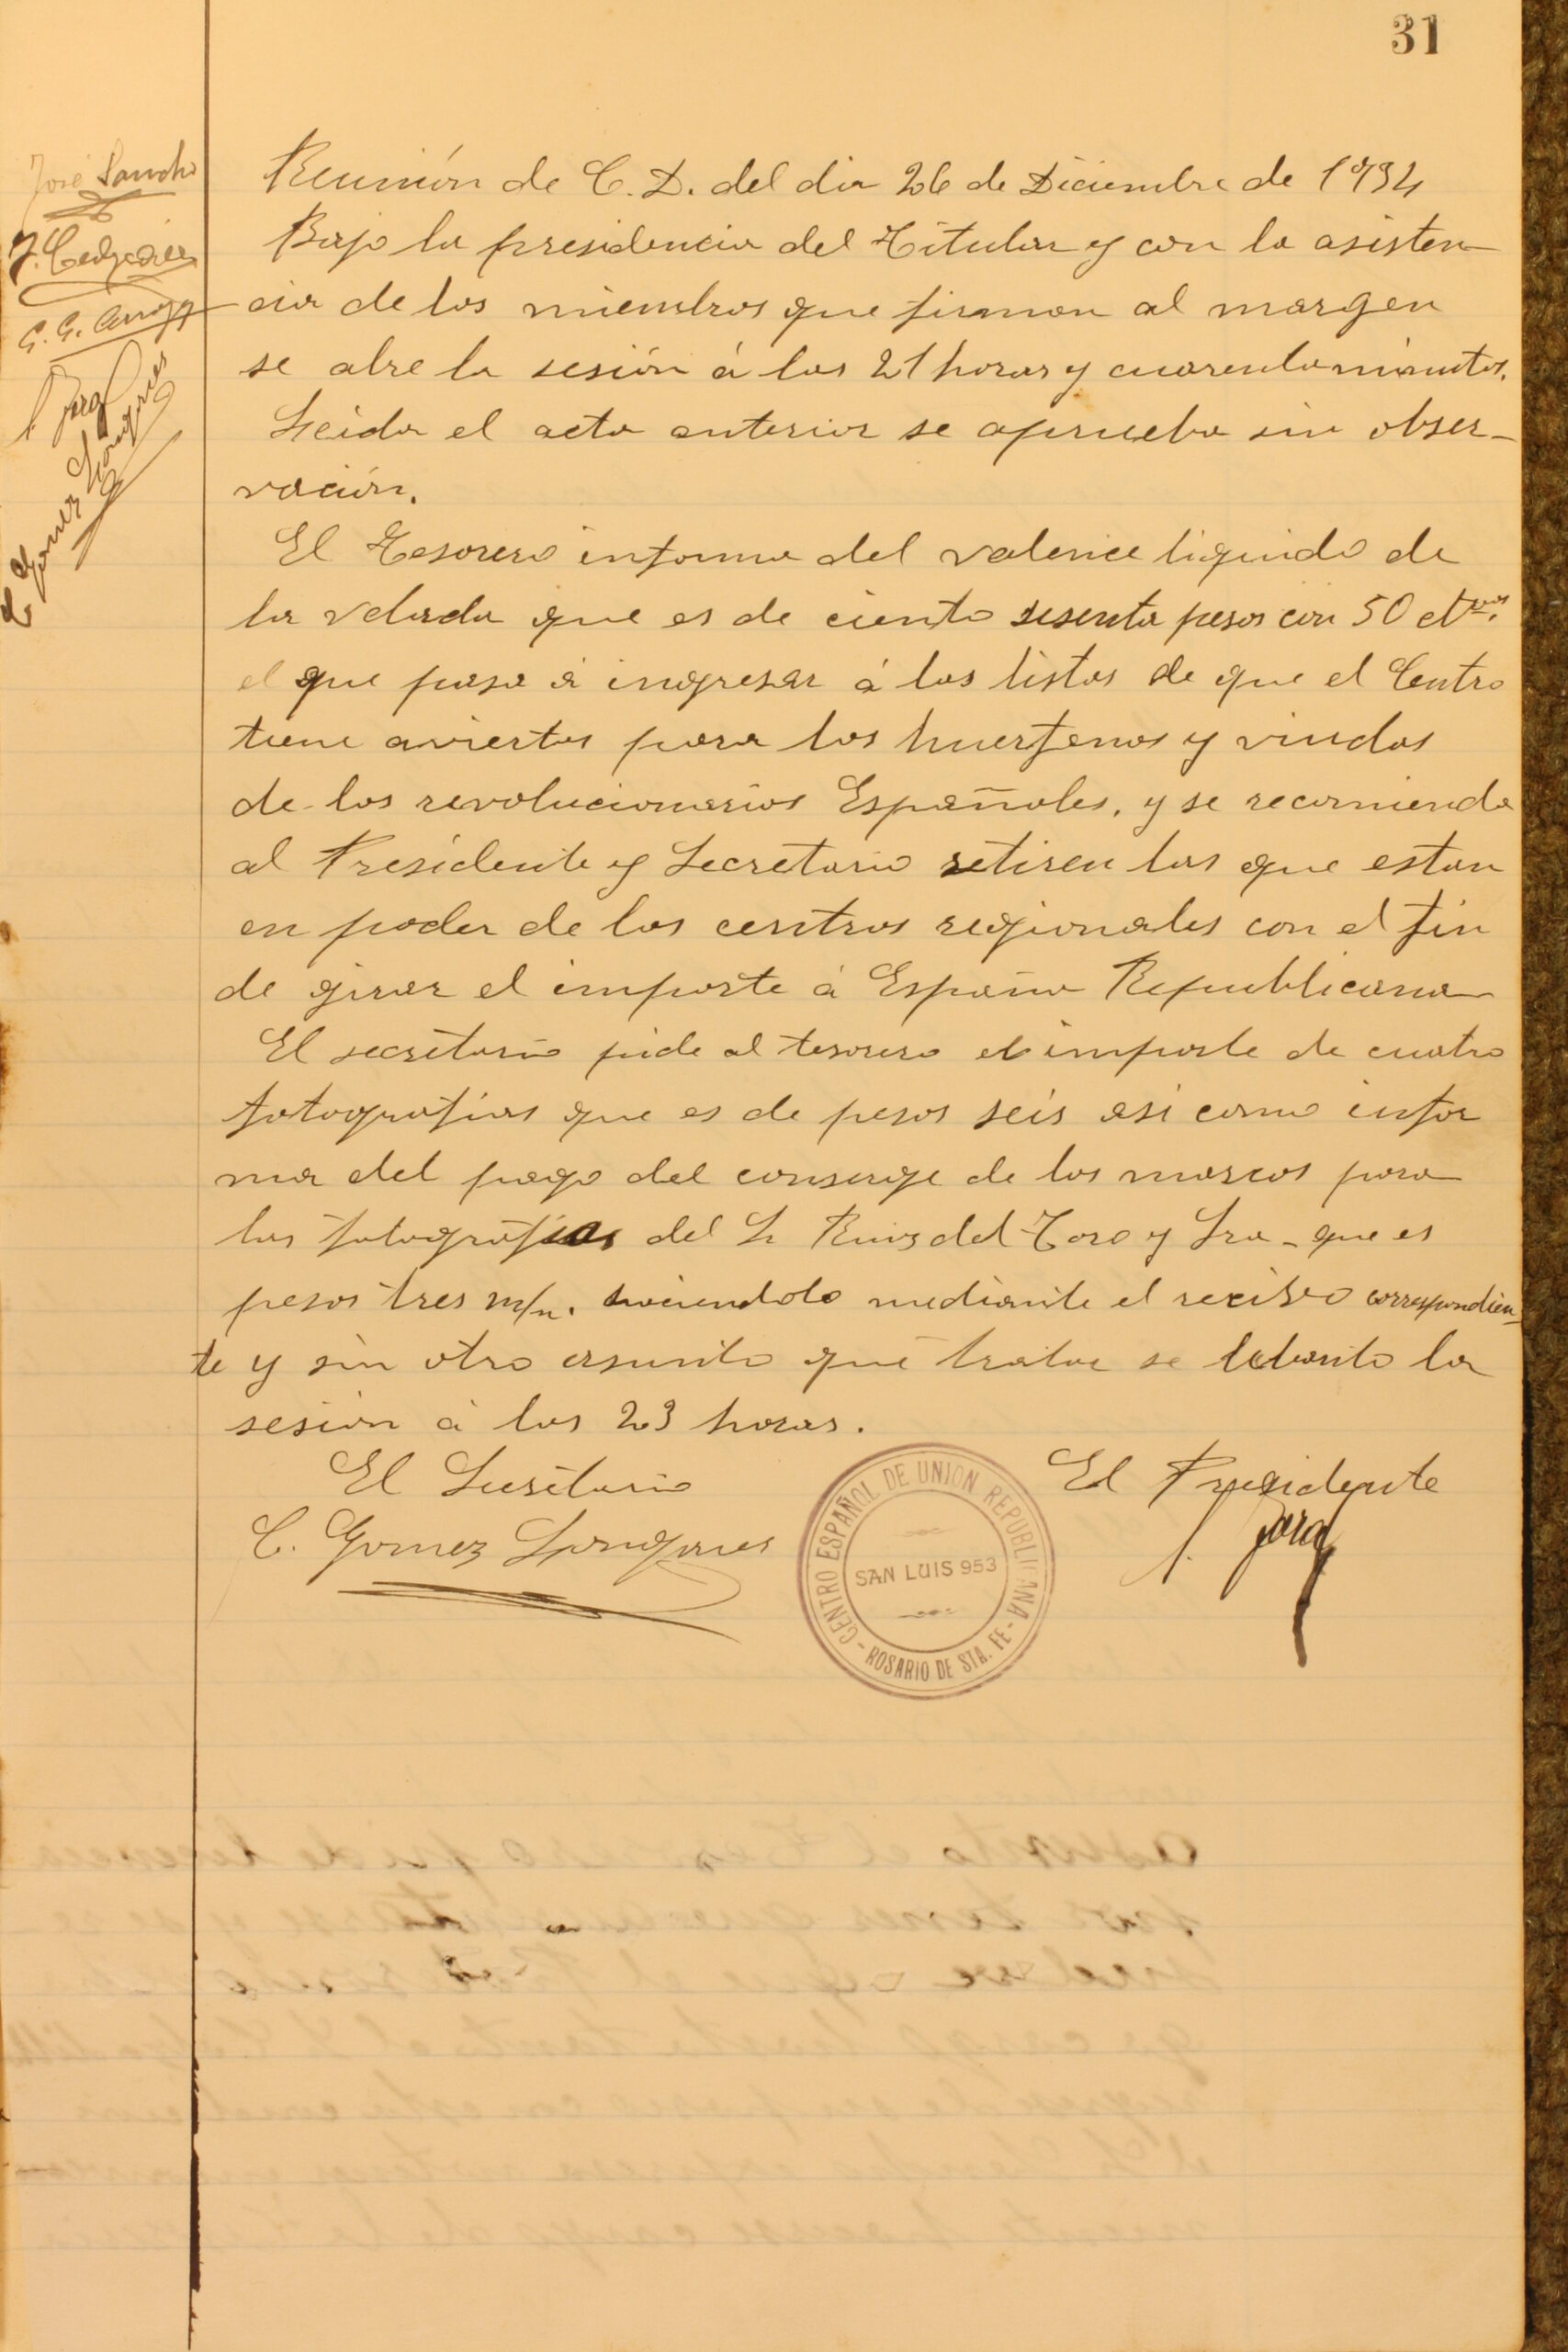 31
José Sancho
G. G.
Reunión de C. D. del dia 26 de Diciembre de 1934
Bajo la presidencia del Titular y con la asisten
cia de los miembros que firman al margen
se abre la sesión á las 21 horas y cuarenta minutos.
Leida el acta anterior se aprueba sin obser-
vación.
El Tesorero informa del valance liquido de
la velada que es de ciento sesenta pesos con 50 ctvos.
el que pasa á ingresar á las listas de que el Centro
tiene aviertas para los huerfanos y viudas
de los revolucionarios Españoles, y se recomienda
al Presidente y Secretario retiren las que estan
en poder de los centros regionales con el fin
de girar el importe á España Republicana
El secretario pide al tesorero el importe de cuatro
fotografias que es de pesos seis asi como infor
ma del pago del conserge de los marcos para
las fotografias del Sr Ruiz del Toro y Sra - que es
pesos tres m/n. haciendolo mediante el recibo correspondien-
te y sin otro asunto que tratar se lebanto la
sesión á las 23 horas.
El Secretario
El Presidente
C. Gomez Longares
CENTRO ESPAÑOL DE UNION REPUBLICANA
SAN LUIS 953
- ROSARIO DE STA. FE -